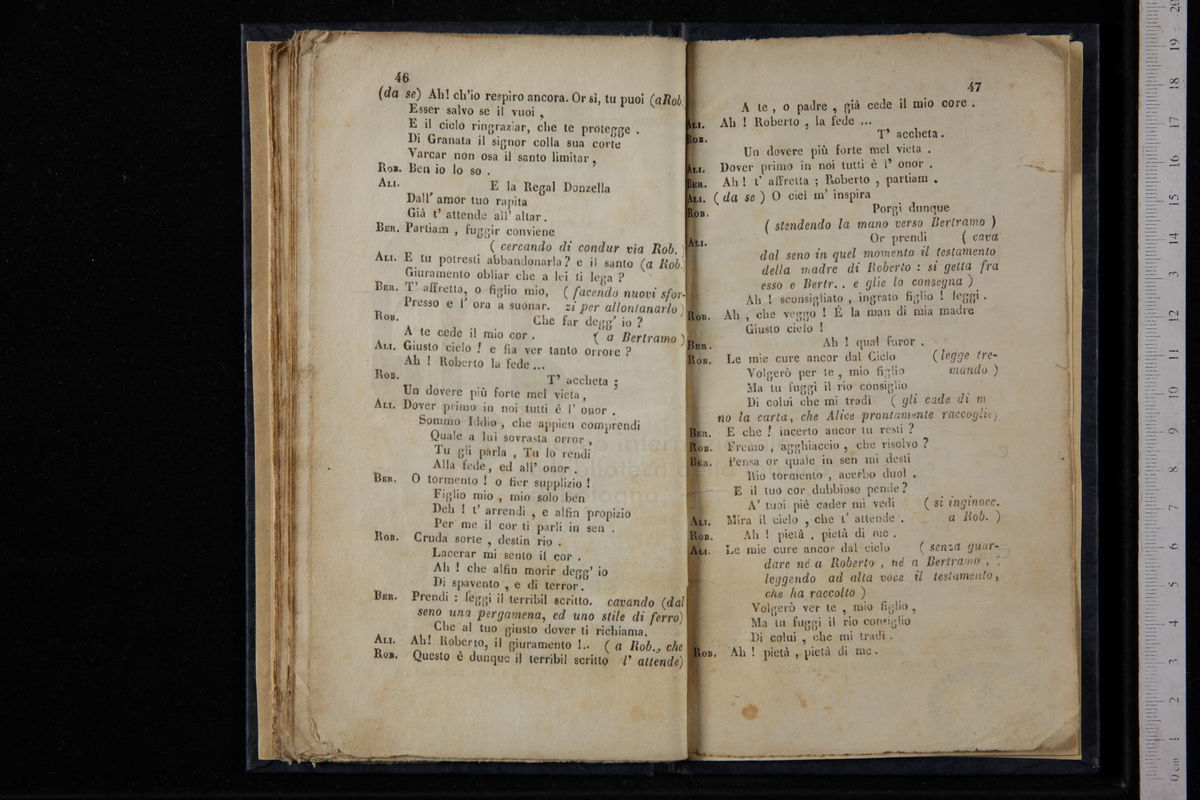 46
(da se) Ah! ch'io respiro ancora. Or sì, tu puoi (aRob.
Esser salvo se il vuoi ,
E il cielo ringraziar, che te protegge .
Di Granata il signor colla sua corte
Varcar non osa il santo limitar ,
ROB. Ben io lo so .
ALI. E la Regal Donzella
Dall' amor tuo rapita
Già t' attende all' altar .
BER. Partiam , fuggir conviene
( cercando di condur via Rob. )
ALI. E tu potresti abbandonarla ? e il santo (a Rob.
Giuramento obliar che a lei ti lega ?
BER. T' affretta, o figlio mio, ( facendo nuovi sfor-
Presso e l' ora a suonar. zi per allontanarlo )
ROB. Che far degg' io ?
A te cede il mio cor . ( a Bertramo )
ALI. Giusto cielo ! e fia ver tanto orrore ?
Ah ! Roberto la fede ...
ROB. T' accheta ;
Un dovere più forte mel vieta ,
ALI. Dover primo in noi tutti è l' onor .
Sommo Iddio , che appien comprendi
Quale a lui sovrasta orror ,
Tu gli parla , Tu lo rendi
Alla fede, ed all' onor .
BER. O tormento ! o fier supplizio !
Figlio mio , mio solo ben
Deh ! t' arrendi , e alfin propizio
Per me il cor ti parli in sen .
ROB. Cruda sorte , destin rio .
Lacerar mi sento il cor .
Ah ! che alfin morir degg' io
Di spavento , e di terror .
BER. Prendi : leggi il terribil scritto. cavando (dal
seno una pergamena, ed uno stile di ferro)
Che al tuo giusto dover ti richiama.
ALI. Ah! Roberto, il giuramento !.. ( a Rob., che
ROB. Questo è dunque il terribil scritto l' attende)
47
A te , o padre , già cede il mio core .
ALI. Ah ! Roberto , la fede ...
ROB. T' accheta .
Un dovere più forte mel vieta .
ALI. Dover primo in noi tutti è l' onor .
BER. Ah ! t' affretta ; Roberto , partiam .
ALI. ( da se ) O ciel m' inspira
ROB. Porgi dunque
( stendendo la mano verso Bertramo )
ALI. Or prendi ( cava
dal seno in quel momento il testamento
della madre di Roberto : si getta fra
esso e Bertr. . e glie lo consegna )
Ah ! sconsigliato , ingrato figlio ! leggi .
ROB. Ah , che veggo ! È la man di mia madre
Giusto cielo !
BER. Ah ! qual furor .
ROB. Le mie cure ancor dal Cielo (legge tre-
Volgerò per te , mio figlio mando )
Ma tu fuggi il rio consiglio
Di colui che mi tradì ( gli cade di m
no la carta, che Alice prontamente raccoglie)
BER. E che ! incerto ancor tu resti ?
ROB. Fremo , agghiaccio , che risolvo ?
BER. Pensa or quale in sen mi desti
Rio tormento , acerbo duol .
E il tuo cor dubbioso pende ?
A' tuoi piè cader mi vedi ( si inginocc.
ALI. Mira il cielo , che t' attende . a Rob. )
ROB. Ah ! pietà , pietà di me .
ALI. Le mie cure ancor dal cielo ( senza guar-
dare né a Roberto , né a Bertramo ,
leggendo ad alta voce il testamento,
che ha raccolto )
Volgerò ver te , mio figlio ,
Ma tu fuggi il rio consiglio
Di colui , che mi tradì .
ROB. Ah ! pietà , pietà di me .